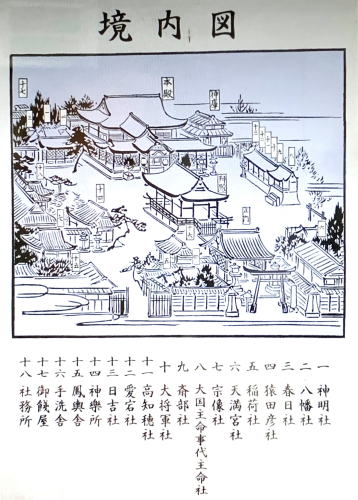 境内図
本殿
十七
一 神明社
二 八幡社
三 春日社
四 猿田彦社
五 稲荷社
六 天満宮社
七 宗像社
八 大国主命事代主命社
九 斎部社
十 大将軍社
十一 高知穂社
十二 愛宕社
十三 日吉社
十四 神樂所
十五 鳳輿舎
十六 手洗舎
十七 御餞屋
十八 社務所